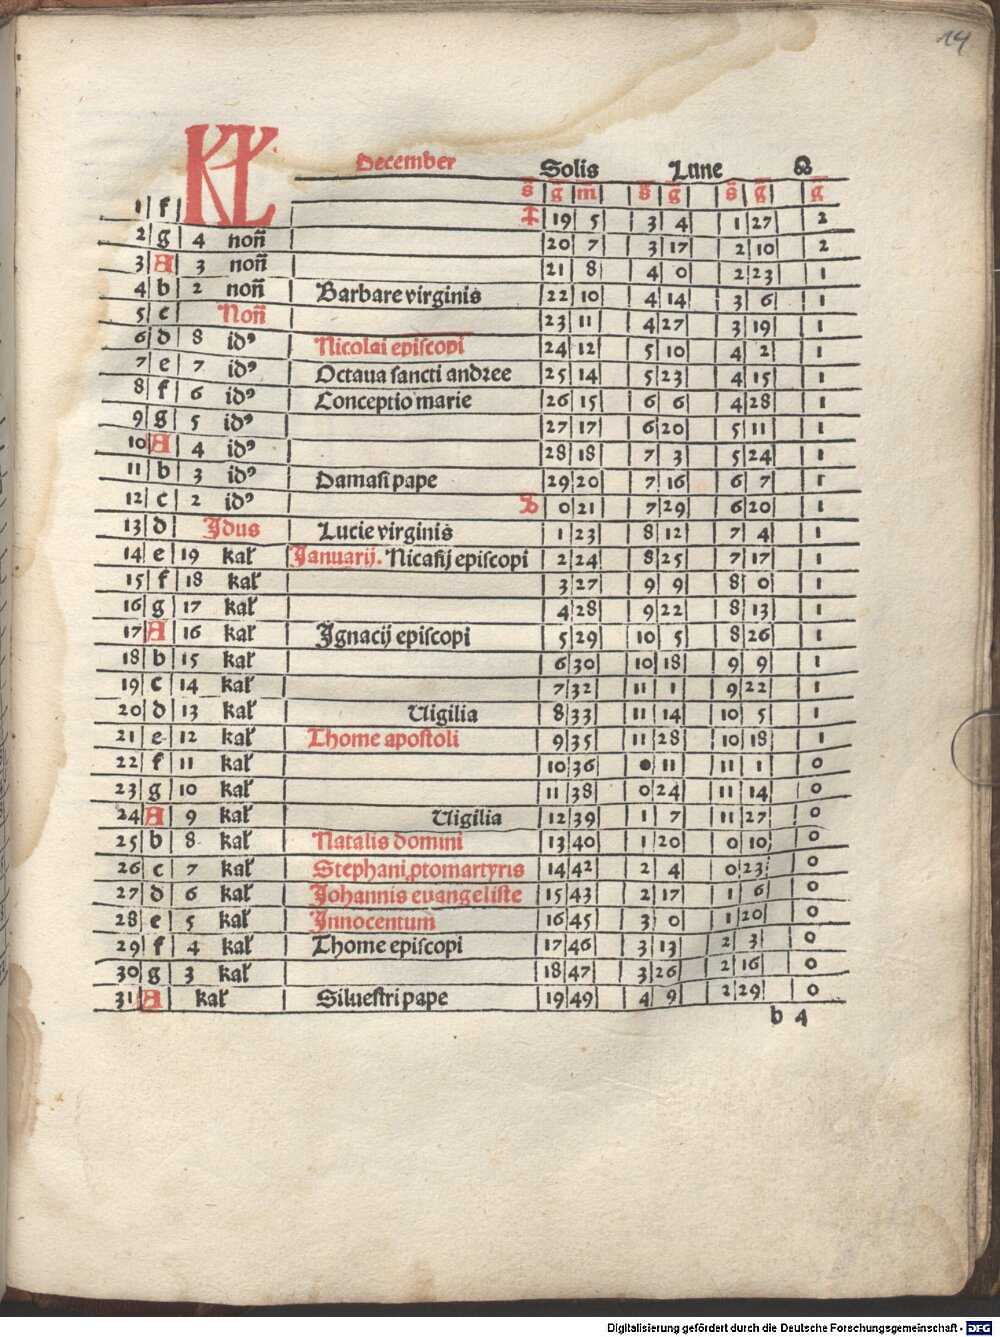 14
KL December Solis Lune ☊
s̄ g̅ m̄ s̄ g̅ s̄ g̅ g̅
1 f ♐ 19 5 3 4 1 27 2
2 g 4 non̄ 20 7 3 17 2 10 2
3 A 3 non̄ 21 8 4 0 2 23 1
4 b 2 non̄ Barbare virginis 22 10 4 14 3 6 1
5 c Non̄ 23 11 4 27 3 19 1
6 d 8 idꝰ Nicolai episcopi 24 12 5 10 4 2 1
7 e 7 idꝰ Octaua sancti andree 25 14 5 23 4 15 1
8 f 6 idꝰ Conceptio marie 26 15 6 6 4 28 1
9 g 5 idꝰ 27 17 6 20 5 11 1
10 A 4 idꝰ 28 18 7 3 5 24 1
11 b 3 idꝰ Damasi pape 29 20 7 16 6 7 1
12 c 2 idꝰ ♑ 0 21 7 29 6 20 1
13 d Idus Lucie virginis 1 23 8 12 7 4 1
14 e 19 kal Januarij. Nicasij episcopi 2 24 8 25 7 17 1
15 f 18 kal 3 27 9 9 8 0 1
16 g 17 kal 4 28 9 22 8 13 1
17 A 16 kal Ignacij episcopi 5 29 10 5 8 26 1
18 b 15 kal 6 30 10 18 9 9 1
19 c 14 kal 7 32 11 1 9 22 1
20 d 13 kal Uigilia 8 33 11 14 10 5 1
21 e 12 kal Thome apostoli 9 35 11 28 10 18 1
22 f 11 kal 10 36 0 11 11 1 0
23 g 10 kal 11 38 0 24 11 14 0
24 A 9 kal Uigilia 12 39 1 7 11 27 0
25 b 8 kal Natalis domini 13 40 1 20 0 10 0
26 c 7 kal Stephani ꝓtomartyris 14 42 2 4 0 23 0
27 d 6 kal Johannis euangeliste 15 43 2 17 1 6 0
28 e 5 kal Innocentum 16 45 3 0 1 20 0
29 f 4 kal Thome episcopi 17 46 3 13 2 3 0
30 g 3 kal 18 47 3 26 2 16 0
31 A kal Siluestri pape 19 49 4 9 2 29 0
b 4
Digitalisierung gefördert durch die Deutsche Forschungsgemeinschaft - DFG